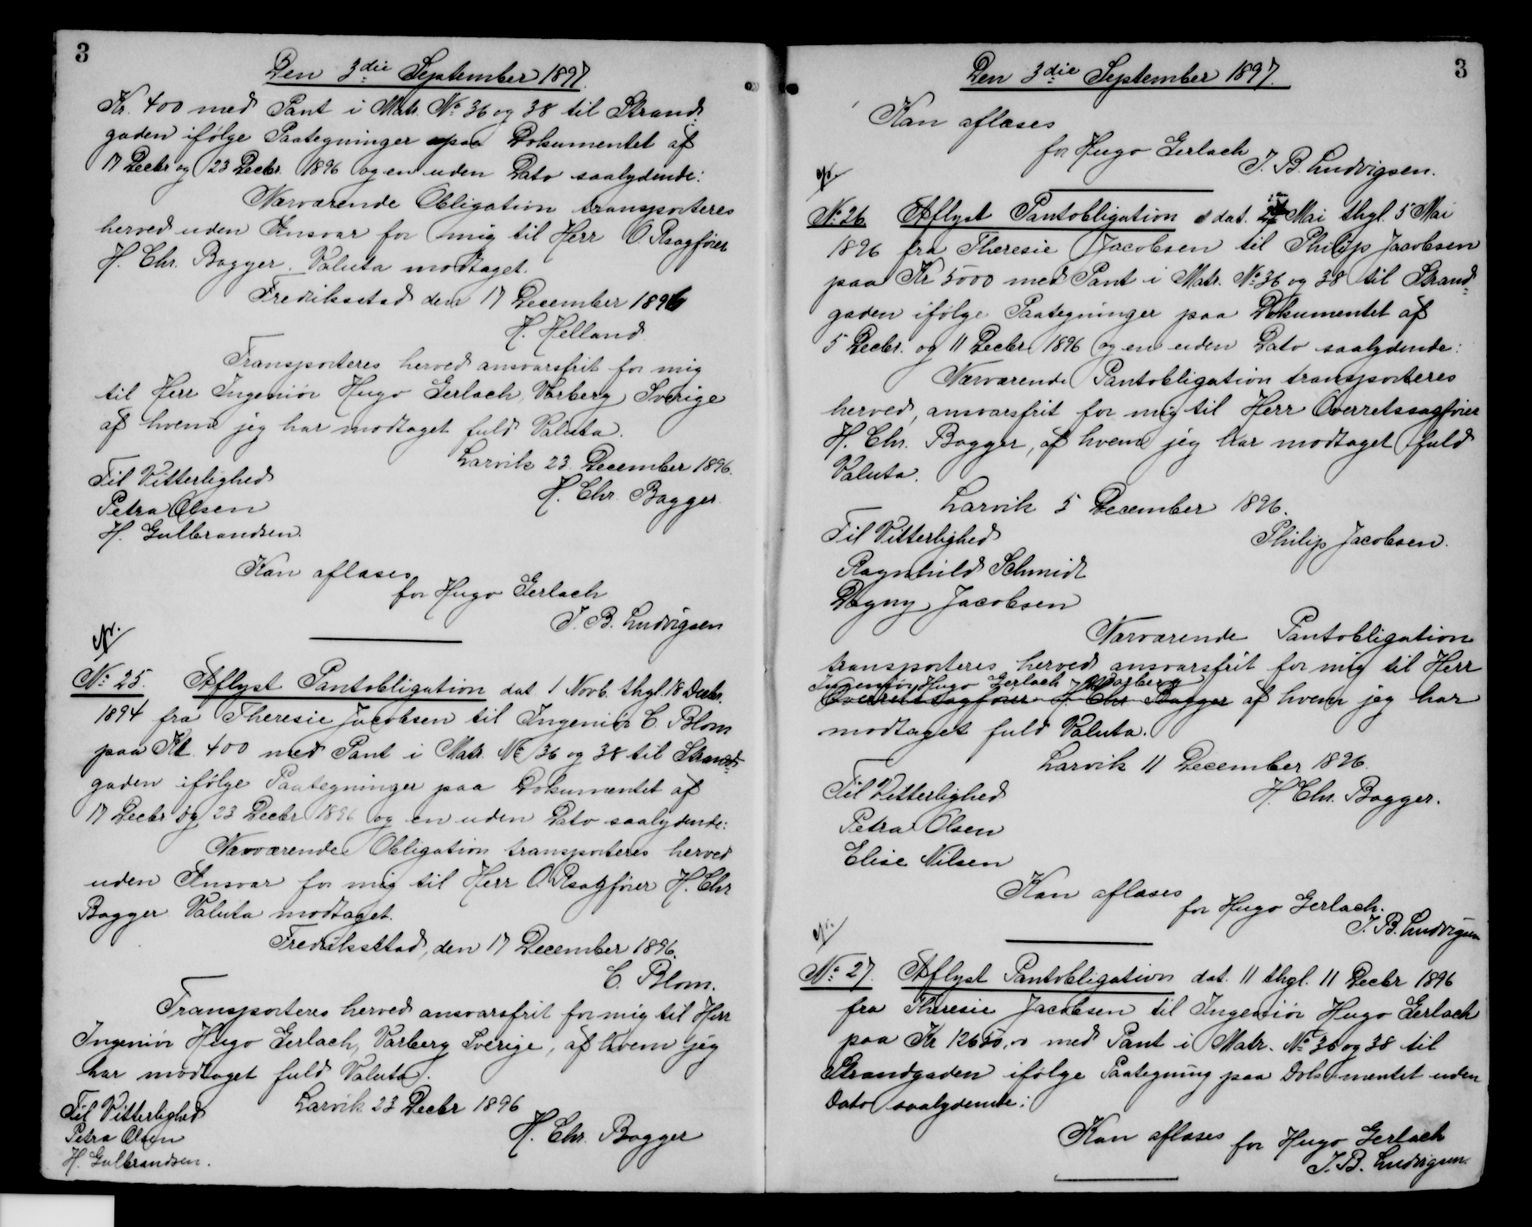 3
Den 3die September 1897.
Kr. 400 med Pant i Matr. No 36 og 38 til Strand-
gaden ifølge Paategninger paa Dokumentet af
17 Decbr og 23 Decbr. 1896 og en uden Dato saalydende:
Nærværende Obligation transporteres
herved uden Ansvar for mig til Herr O.Rsagfører
H. Chr. Bagger. Valuta modtaget.
Fredriksstad den 17 December 1896
H. Helland.
Transporteres herved ansvarsfrit for mig
til Herr Ingeniør Hugo Gerlach, Varberg, Sverige
af hvem jeg har modtaget fuld Valuta.
Larvik 23 December 1896.
Til Vitterlighed
H. Chr. Bagger.
Petra Olsen
H. Gulbrandsen.
Kan aflæses
for Hugo Gerlach
J. B. Ludvigsen
No 25. Aflyst Pantobligation dat 1 Novb. thgl. 18 Decbr.
1894 fra Theresie Jacobsen til Ingeniør C. Blom
paa Kr. 400 med Pant i Matr. No 36 og 38 til Strand-
gaden ifølge Paategninger paa Dokumentet af
17 Decbr og 23 Decbr 1896 og en uden Dato saalydende:
Nærværende Obligation transporteres herved
uden Ansvar for mig til Herr O.Rsagfører H. Chr
Bagger Valuta modtaget.
Fredriksstad, den 17 December 1896.
C. Blom.
Transporteres herved ansvarsfrit for mig til Herr
Ingeniør Hugo Gerlach, Varberg Sverige, af hvem jeg
har modtaget fuld Valuta.
Larvik 23 Decbr 1896
Til Vitterlighed
H. Chr. Bagger
Petra Olsen
H. Gulbrandsen.
3
Den 3die September 1897.
Kan aflæses
for Hugo Gerlach
J. B. Ludvigsen.
No 26. Aflyst Pantobligation dat. Mai thgl. 5 Mai
1896 fra Theresie Jacobsen til Philip Jacobsen
paa Kr 5000 med Pant i Matr. No 36 og 38 til Strand-
gaden ifølge Paategninger paa Dokumentet af
5 Decbr. og 11 Decbr 1896 og en uden Dato saalydende:
Nærværende Pantobligation transporteres
herved, ansvarsfrit for mig til Herr Overretssagfører
H. Chr. Bagger, af hvem jeg har modtaget fuld
Valuta.
Larvik 5 December 1896.
Til Vitterlighed
Philip Jacobsen.
Ragnhild Schmidt
Dagny Jacobsen
Nærværende Pantobligation
transporteres herved ansvarsfrit for mig til Herr
Ingeniør Hugo Gerlach, Warberg
Overretssagfører H. Chr Bagger af hvem jeg har
modtaget fuld Valuta.
Larvik 11 December 1896.
Til Vitterlighed
H. Chr. Bagger.
Petra Olsen
Elise Nilsen
Kan aflæses
for Hugo Gerlach.
J. B. Ludvigsen
No 27. Aflyst Pantobligation dat. 11 thgl. 11 Decbr 1896
fra Theresie Jacobsen til Ingeniør Hugo Gerlach
paa Kr med Pant i Matr. No 36 og 38 til
Strandgaden ifølge Paategning paa Dokumentet uden
Dato saalydende:
Kan aflæses for Hugo Gerlach
J. B. Ludvigsen.